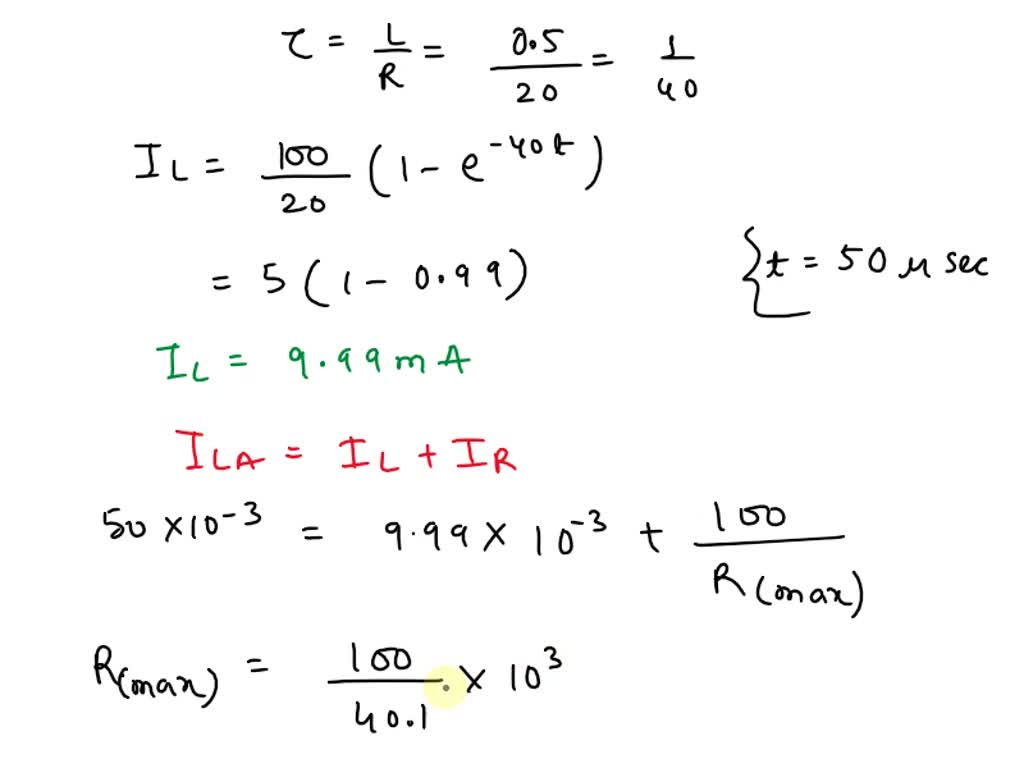 τ = L/R = 0.5/20 = 1/40
I_L = 100/20 (1 - e^{-40t})
= 5 (1 - 0.99)
{ t = 50 μ sec
I_L = 9.99 m A
I_{LA} = I_L + I_R
50 × 10^{-3} = 9.99 × 10^{-3} + 100/R(max)
R(max) = 100/40.1 × 10^3